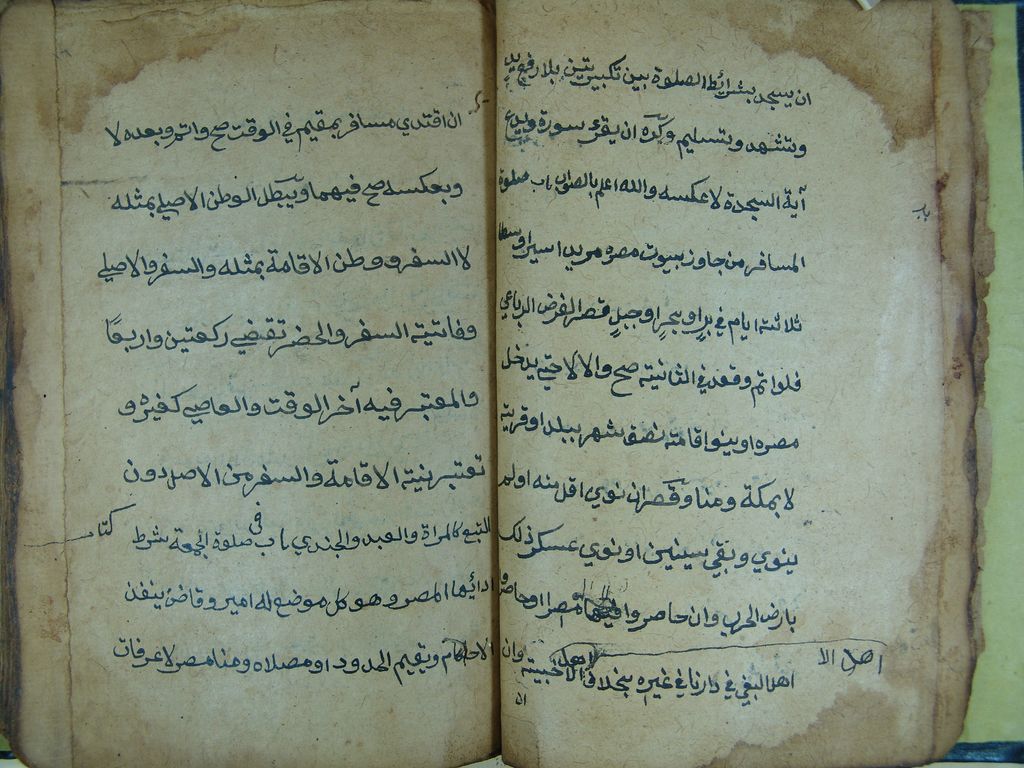 ان يسجد بشرائط الصلوة بين تكبيرتين بلا رفع يد
وتشهد وتسليم وكره ان يقرء سورة ويدع
آية السجدة لا عكسه والله اعلم بالصواب باب صلوة
المسافر من جاوز بيوت مصره مريدا سيرا وسطا
ثلاثة ايام في بر او بحر او جبل قصر الفرض الرباعي
فلو اتم وقعد في الثانية صح والا لا حتى يدخل
مصره او ينوا اقامة نصف شهر ببلد او قرية
لا بمكة ومنا وقصر ان نوى اقل منه او لم
ينوي وبقى سينين او نوي عسكر ذلك
بارض الحرب وان حاصروا فيها مصرا او حاصروا
اهل البغي في دارنا في غيره بخلاف اهل الاخبية
اهل الا
وان
ان اقتدي مسافر بمقيم في الوقت صح واتم وبعده لا
وبعكسه صح فيهما ويبطل الوطن الاصلي بمثله
لا السفر ووطن الاقامة بمثله والسفر والاصلي
وفائتية السفر والحضر تقضي ركعتين واربعًا
والمعتبر فيه آخر الوقت والعاصي كغيره و
تعتبر نية الاقامة والسفر من الاصل دون
التبع كالمراة والعبد والجندي باب في صلوة الجمعة شرط
ادائها المصر وهو كل موضع له امير وقاض ينفذ
الاحكام ويقيم الحدود او مصلاه ومنا مصر لا عرفات